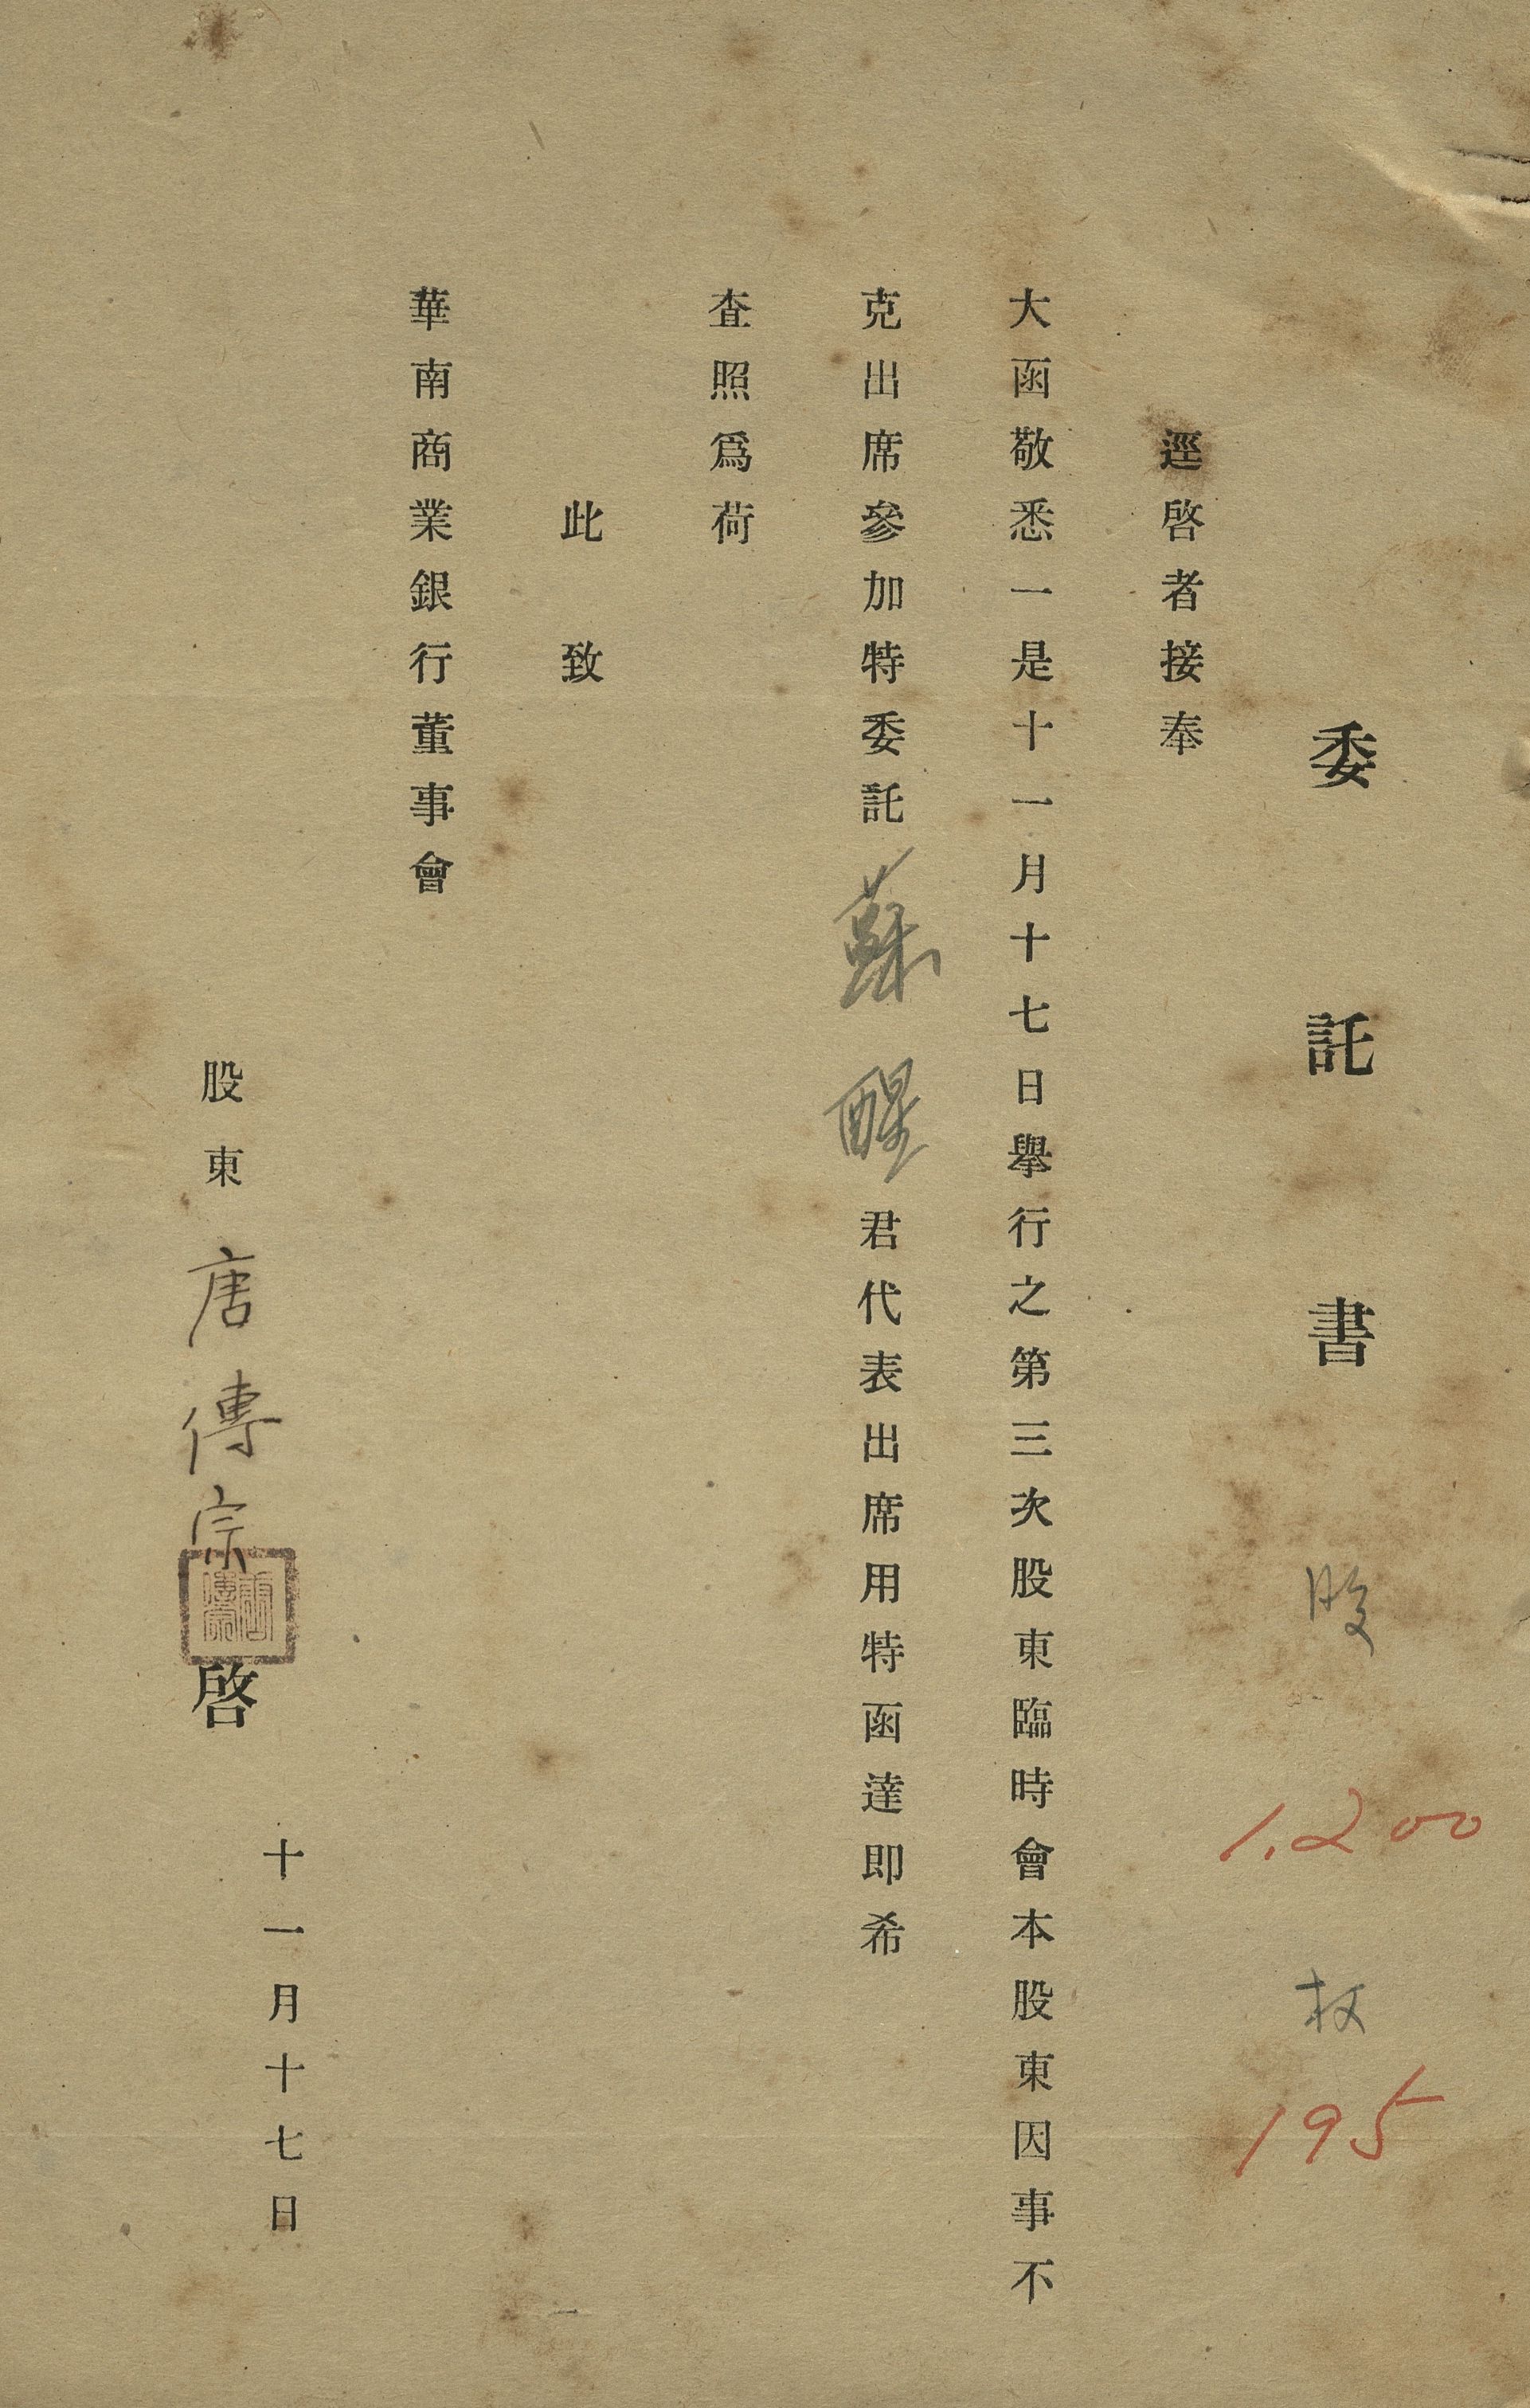 委託書 股 1.200 枚 195
逕啓者接奉
大函敬悉一是十一月十七日舉行之第三次股東臨時會本股東因事不
克出席參加特委託蘇醒君代表出席用特函達即希
查照爲荷
此致
華南商業銀行董事會
股東唐傳宗啓
十一月十七日